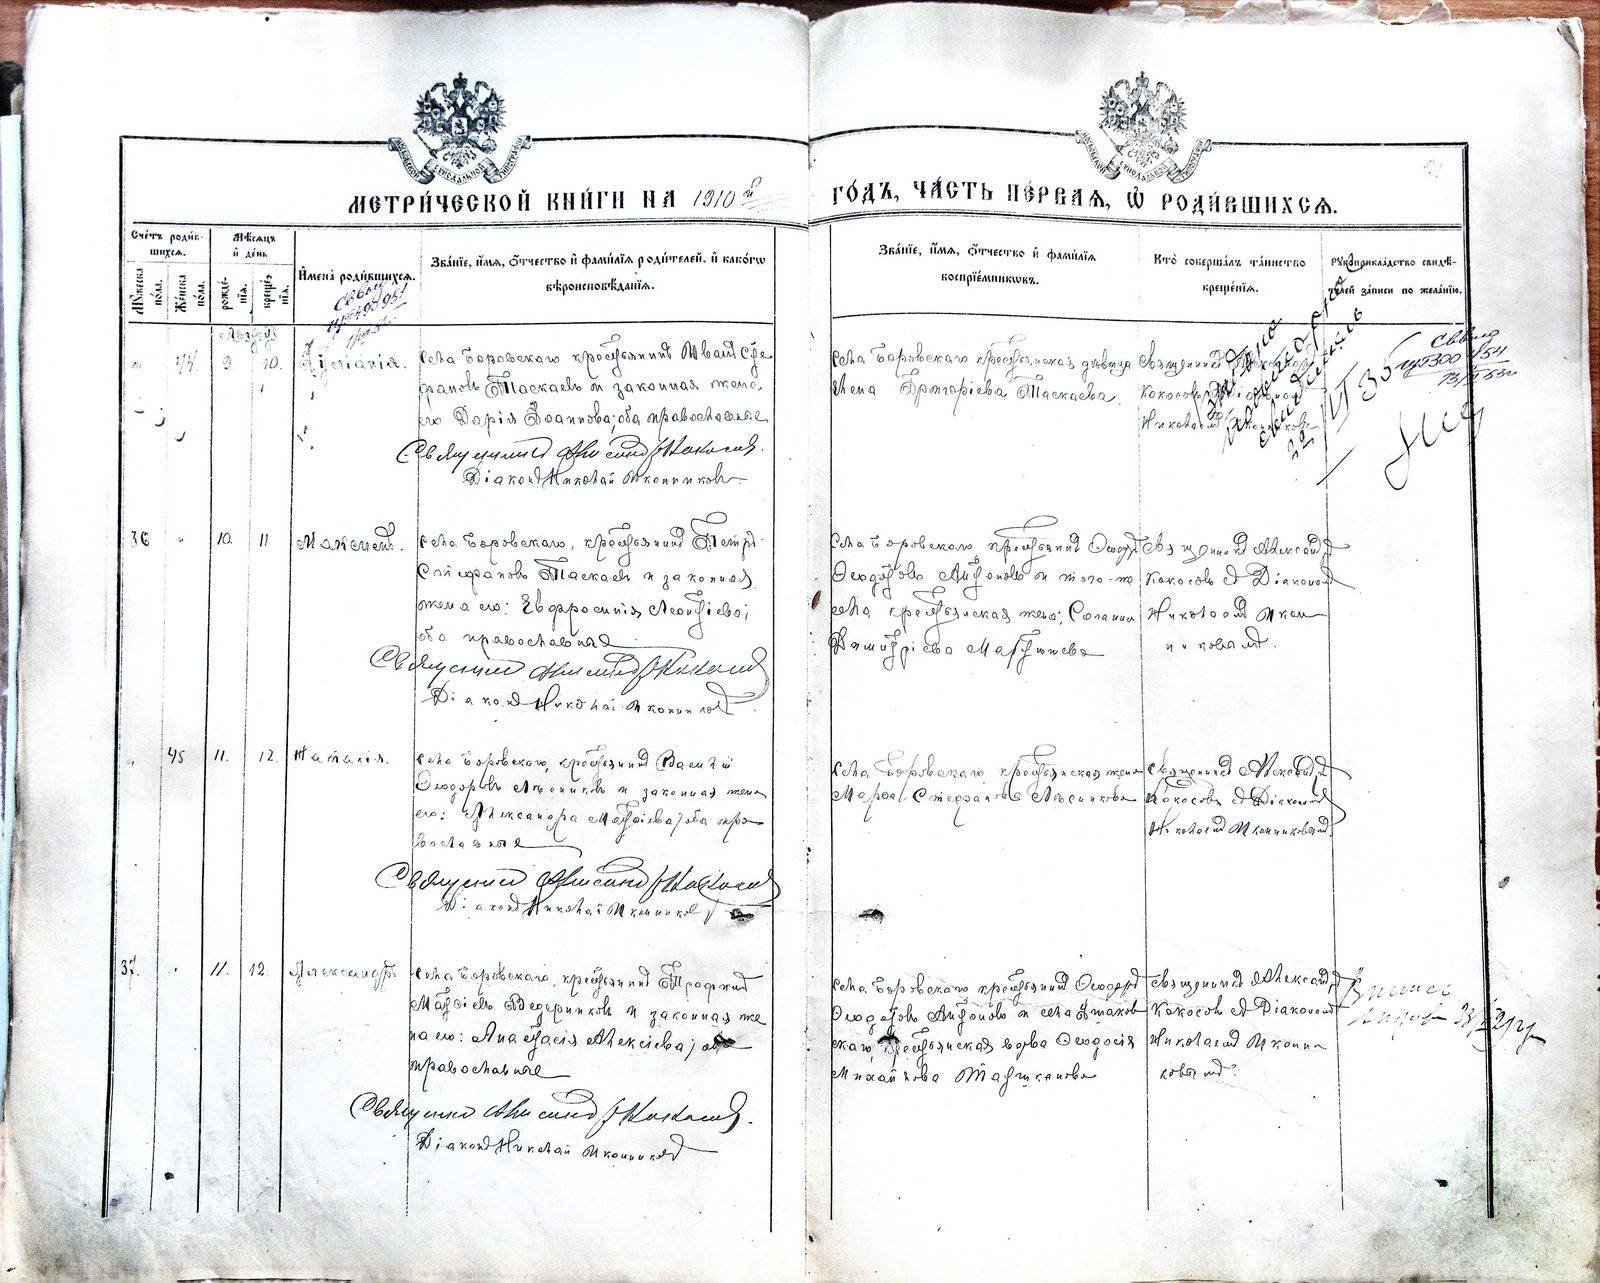 МЕТРИ́ЧЕСКОЙ КНИ́ГИ НА 1910й ГО́ДЪ, ЧА́СТЬ ПЕ́РВАЯ, Ѡ҆ РОДИ́ВШИХСЯ.
Сче́тъ роди́в-
шихся.
Му́жеска по́ла.
Же́нска по́ла.
Мѣ́сяцъ
и҆ де́нь
рожде́-
нїя.
креще́-
нїя.
И҆мена̀ роди́вшихся.
Зва́нїе, и҆́мя, ѻ҆́тчество и҆ фами́лїя роди́телей, и҆ како́гѡ
вѣроисповѣ́данїя.
Зва́нїе, и҆́мя, ѻ҆́тчество и҆ фами́лїя
воспрїе́мникѡвъ.
Кто̀ соверша́лъ та́инство
креще́нїя.
Рꙋкоприкла́дство свидѣ́-
телей за́писи по жела́нїю.
Августъ
" 44 9 10.
Села Боровскаго крестьянинъ Иванъ Сте
фановъ Таскаевъ и законная жена
его Дарія Іоаннова; оба православные
Священникъ Александръ Кокосовъ
Діаконъ Николай Иконниковъ
Села Боровскаго крестьянская дѣвица
Елена Григоріева Таскаева.
Священникъ Александръ
Кокосовъ и Діаконъ
Николай Иконниковъ
36 " 10. 11 Максимъ.
Села Боровскаго, крестьянинъ Петръ
Стефановъ Таскаевъ и законная
жена его: Евфросинія Леонтіева;
оба православные
Священникъ Александръ Кокосовъ
Діаконъ Николай Иконниковъ
Села Боровскаго крестьянинъ Ѳеодотъ
Ѳеодотовъ Антоновъ и того-же
села крестьянская жена;
Димитріева Мартюшева
Священникъ Александръ
Кокосовъ и Діаконъ
Николай Икон
никовъ.
" 45 11. 12. Наталія.
Села Боровскаго, крестьянинъ Василій
Ѳеодоровъ Лѣсниковъ и законная жена
его: Александра Матѳіева; оба пра
вославные
Священникъ Александръ Кокосовъ
Діаконъ Николай Иконниковъ
Села Боровскаго крестьянская жена
Марѳа Стефанова Лѣсникова
Священникъ Александръ
Кокосовъ и Діаконъ
Николай Иконниковъ.
37. " 11. 12. Александръ
Села Боровскаго, крестьянинъ Трофимъ
Матѳіевъ Ведерниковъ и законная же
на его: Анастасія Алексіева; оба
православные
Священникъ Александръ Кокосовъ.
Діаконъ Николай Иконниковъ
Села Боровскаго крестьянинъ Ѳеодотъ
Ѳеодотовъ Антоновъ и села
скаго крестьянская вдова Ѳеодосія
Михайлова
Священникъ Александръ
Кокосовъ и Діаконъ
Николай Иконни
ковъ.